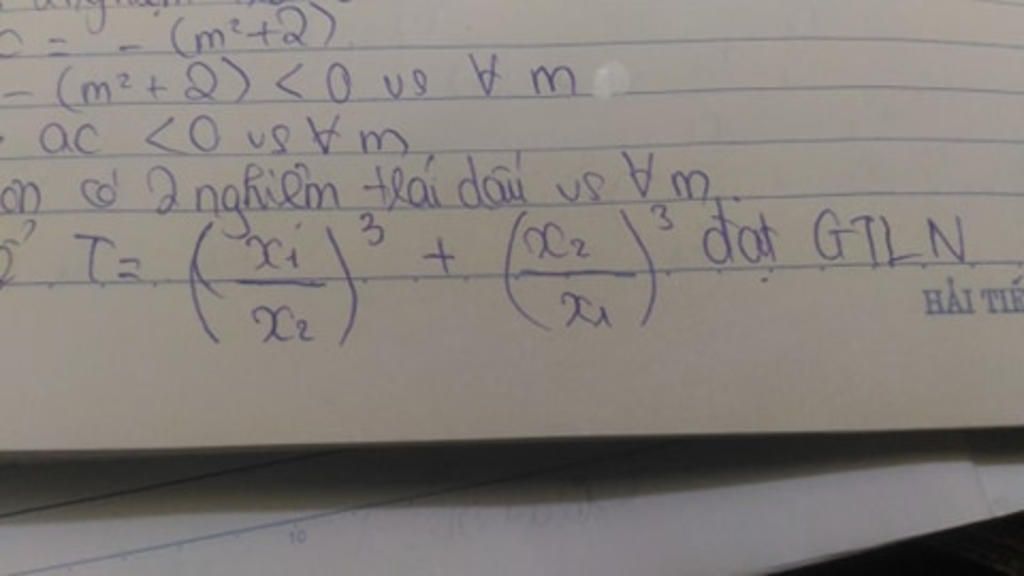 C = - (m²+2)
- (m²+2) < 0 vs ∀ m
ac < 0 vs ∀ m
ôn có 2 nghiệm trái dấu vs ∀ m.
T = (x₁/x₂)³ + (x₂/x₁)³ đạt GTLN
HẢI TIẾ
10